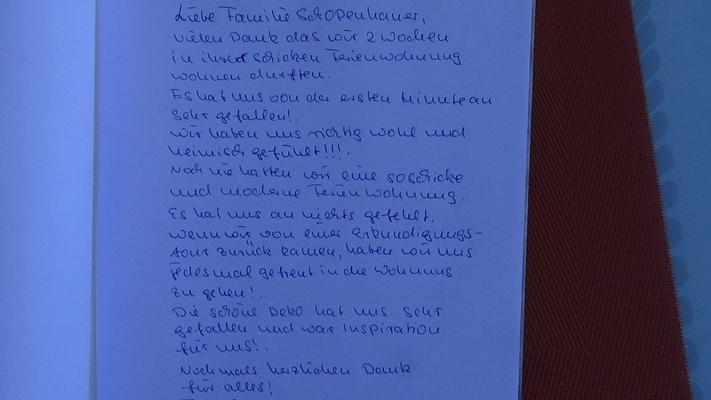 Liebe Familie Schopenhauer,
vielen Dank das wir 2 Wochen
in ihrer schicken Ferienwohnung
wohnen durften.
Es hat uns von der ersten Minute an
sehr gefallen!.
Wir haben uns richtig wohl und
heimisch gefühlt!!!.
Noch nie hatten wir eine so schicke
und moderne Ferienwohnung.
Es hat uns an nichts gefehlt.
Wenn wir von einer Erkundigungs-
tour zurück kamen, haben wir uns
jedesmal gefreut in die Wohnung
zu gehen!.
Die schöne Deko hat uns sehr
gefallen und war Inspiration
für uns!.
Nochmals herzlichen Dank
für alles!